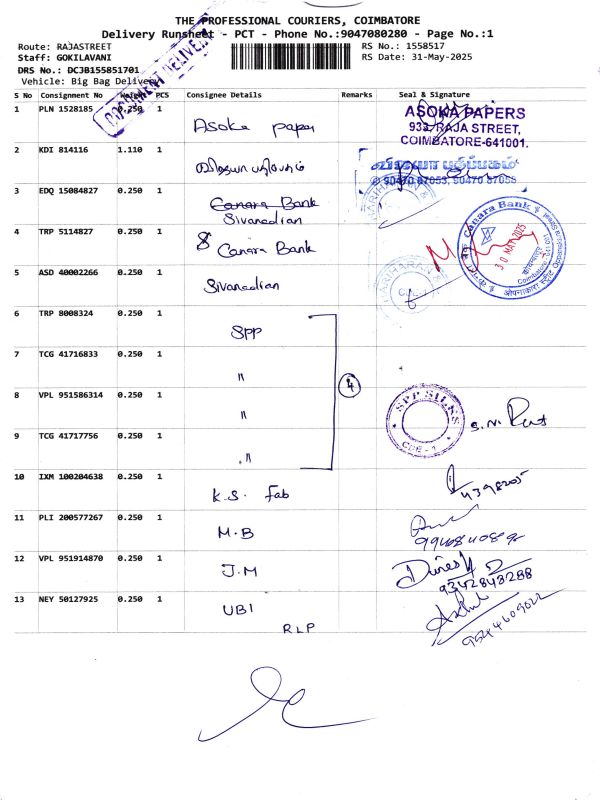 THE PROFESSIONAL COURIERS, COIMBATORE
Delivery Runsheet - PCT - Phone No.:9047080280 - Page No.:1
Route: RAJASTREET RS No.: 1558517
Staff: GOKILAVANI RS Date: 31-May-2025
DRS No.: DCJB155851701
Vehicle: Big Bag Delivery
S No Consignment No Weight PCS Consignee Details Remarks Seal & Signature
1 PLN 1528185 0.250 1 Asoka paper
ASOKA PAPERS
933, RAJA STREET,
COIMBATORE-641001.
2 KDI 814116 1.110 1
90470 87053, 90470 87055
3 EDQ 15084827 0.250 1 Canara Bank
Sivanadian
4 TRP 5114827 0.250 1 Canara Bank
Canara Bank
30 MAY 2025
5 ASD 40002266 0.250 1 Sivanadian
6 TRP 8008324 0.250 1 SPP
7 TCG 41716833 0.250 1 "
4
8 VPL 951586314 0.250 1 "
SPP SILKS
CBE - 1
9 TCG 41717756 0.250 1 "
10 IXM 100204638 0.250 1 K.S. Fab
11 PLI 200577267 0.250 1 M.B
12 VPL 951914870 0.250 1 J.M
9342843288
13 NEY 50127925 0.250 1 UBI
RLP